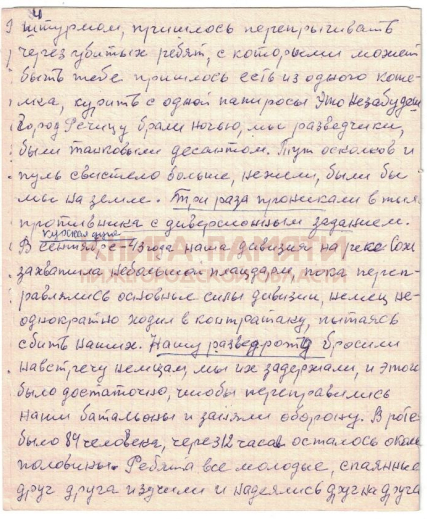 4
штурмом, пришлось перепрыгивать
через убитых ребят, с которыми может
быть тебе пришлось есть из одного коте-
лка, курить с одной папиросы Это незабудеш
Город Речицу брали ночью, мы разведчики,
были танковым десантом. Тут осколков и
пуль свистело больше, нежели, были бы
мы на земле. Три раза проникали в тыл
противника с диверсионным заданием.
В сентябре-43 года наша дивизия на реке Сож
захватила небольшой плацдарм, пока переп-
равлялись основные силы дивизии, немец не-
однократно ходил в контратаку, пытаясь
сбить наших. Нашу разведроту бросили
навстречу немцам, мы их задержали, и этого
было достаточно, чтобы переправились
наши батальоны и заняли оборону. В роте
было 84 человека, через 12 часов осталось около
половины. Ребята все молодые, спаянные
друг друга изучили и надеялись друг на друга
КНИГА ПАМЯТИ
НИЖЕГОРОДСКОЙ ОБЛАСТИ